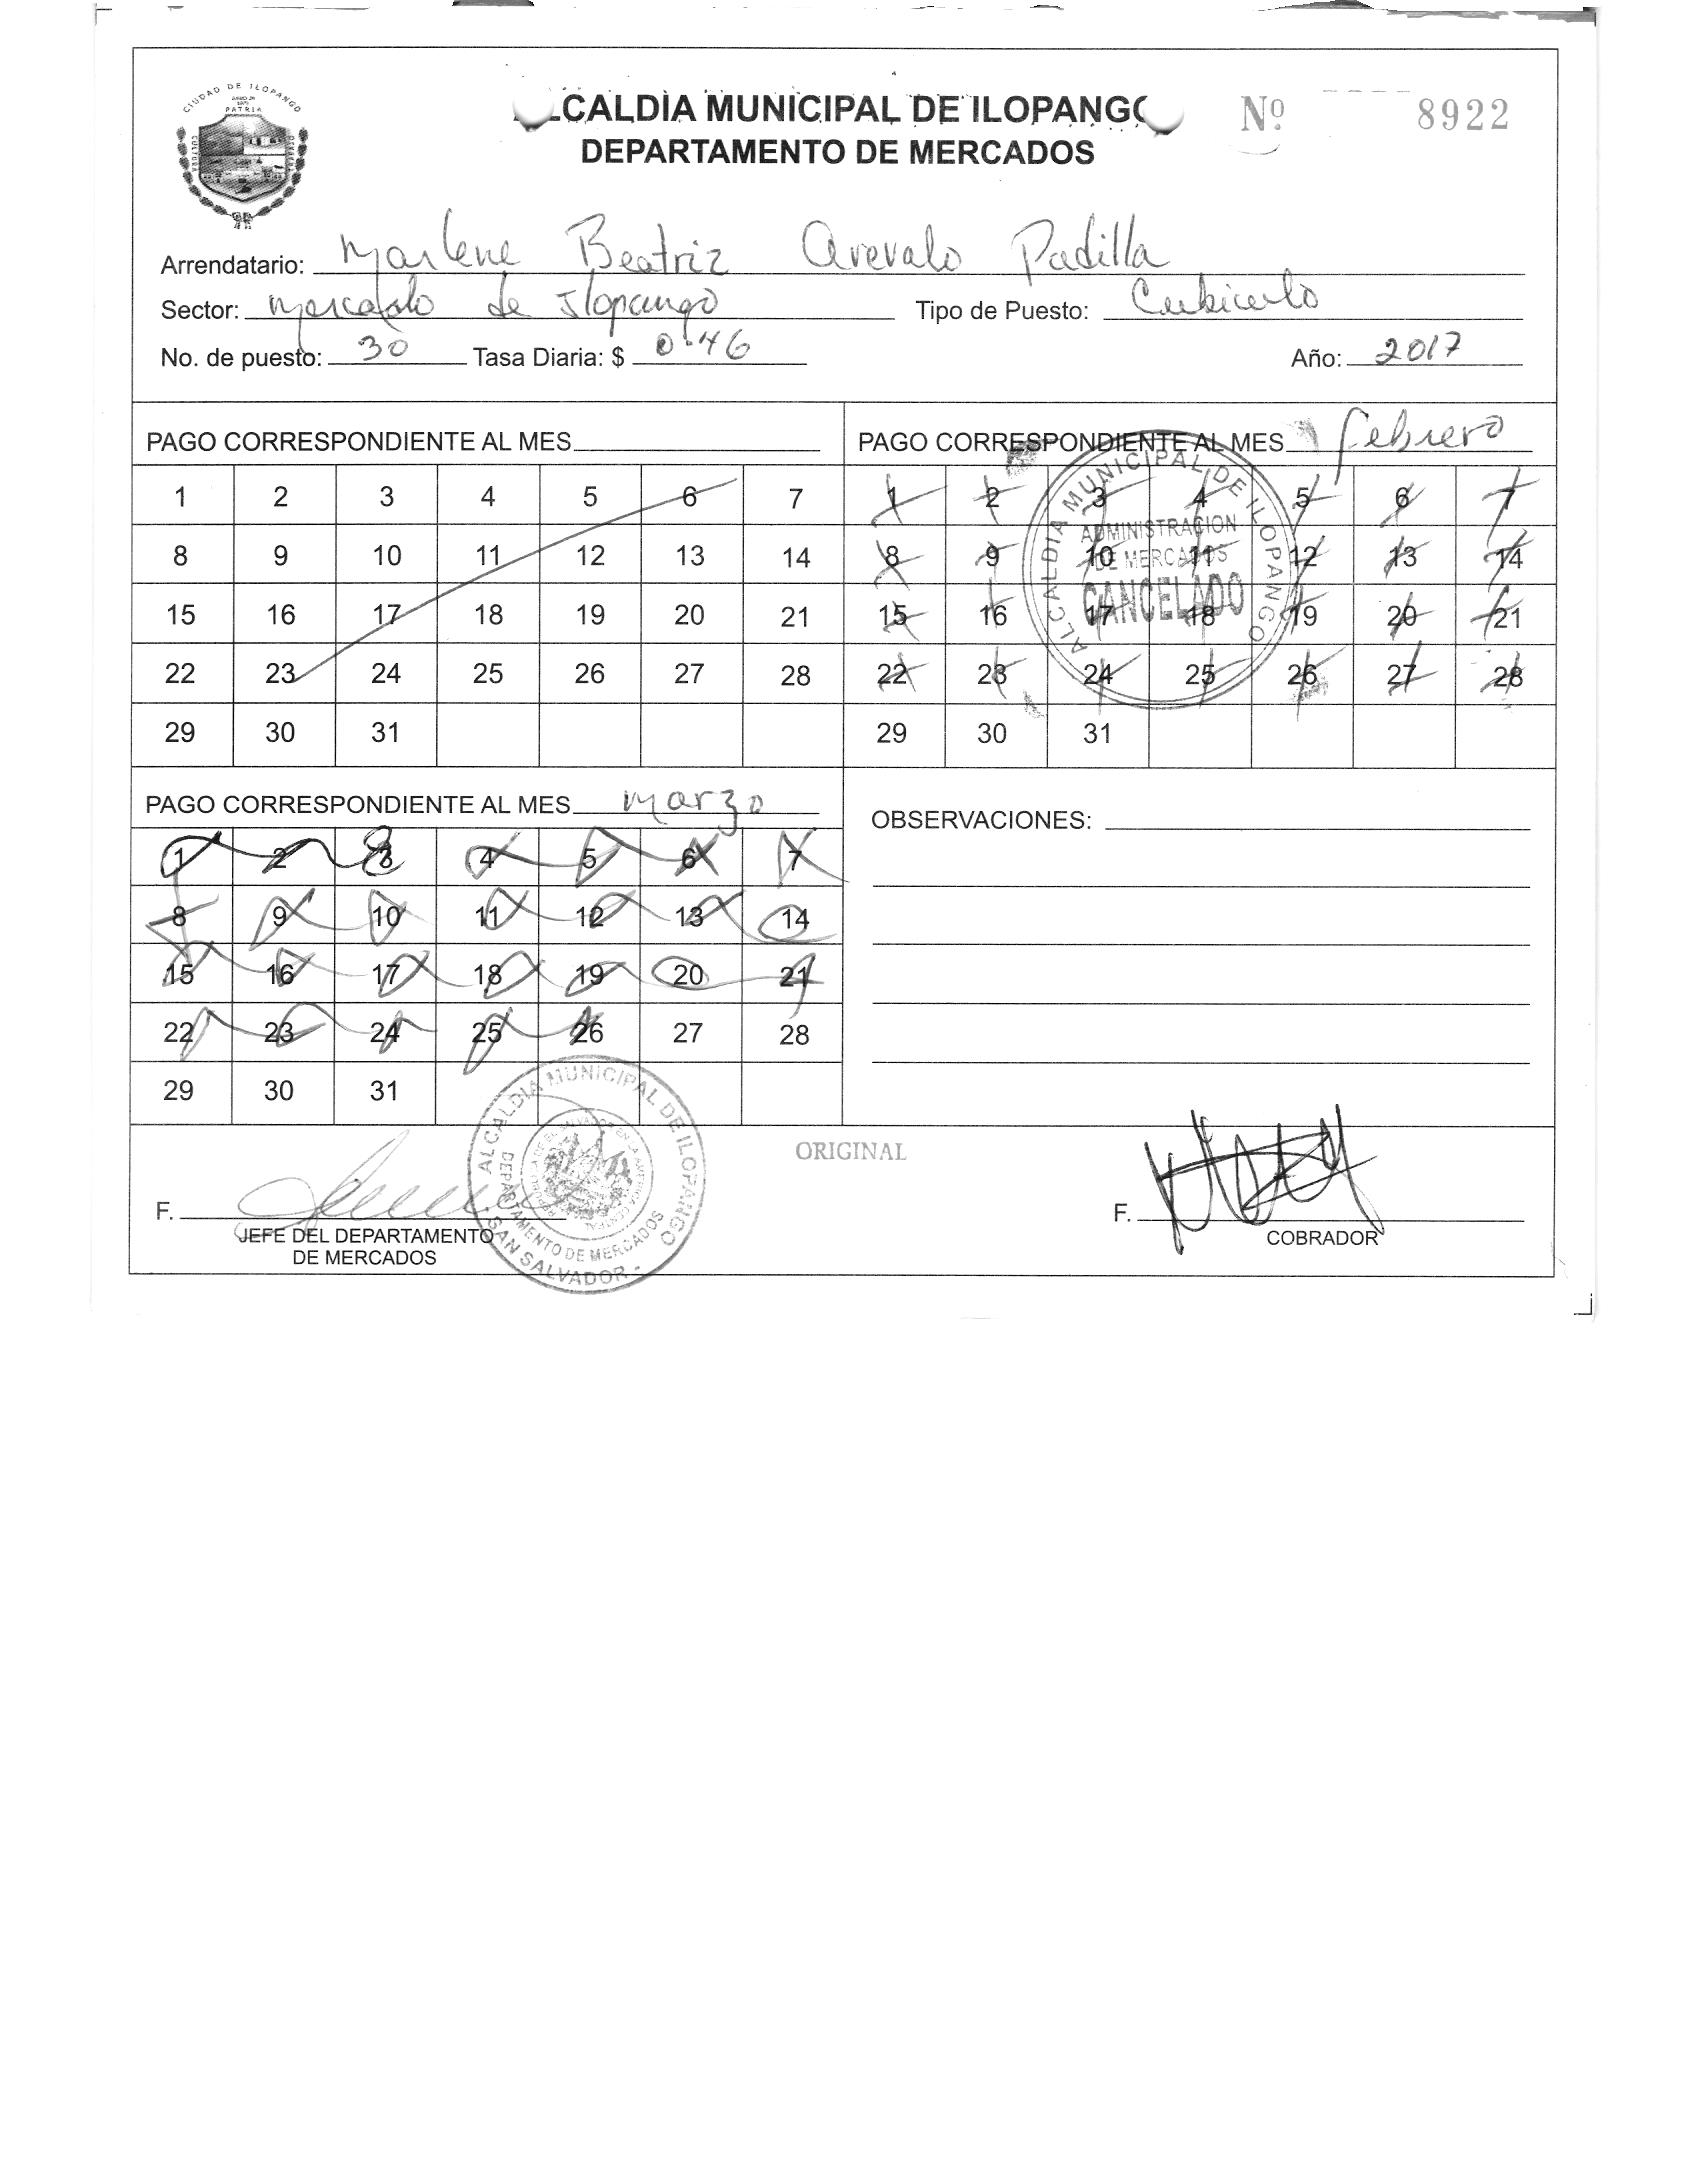 CIUDAD DE ILOPANGO
PATRIA
CULTURA
CALDIA MUNICIPAL DE ILOPANGO
Nº 8922
DEPARTAMENTO DE MERCADOS
Arrendatario: Marlene Beatriz Arevalo Padilla
Sector: Mercado de Ilopango Tipo de Puesto: Cubiculo
No. de puesto: 30 Tasa Diaria: $ 0.46 Año: 2017
PAGO CORRESPONDIENTE AL MES
1 2 3 4 5 6 7
8 9 10 11 12 13 14
15 16 17 18 19 20 21
22 23 24 25 26 27 28
29 30 31
PAGO CORRESPONDIENTE AL MES febrero
1 2 3 4 5 6 7
8 9 10 11 12 13 14
15 16 17 18 19 20 21
22 23 24 25 26 27 28
29 30 31
ALCALDIA MUNICIPAL DE ILOPANGO
ADMINISTRACION
DE MERCADOS
CANCELADO
PAGO CORRESPONDIENTE AL MES marzo
1 2 3 4 5 6 7
8 9 10 11 12 13 14
15 16 17 18 19 20 21
22 23 24 25 26 27 28
29 30 31
OBSERVACIONES:
ALCALDIA MUNICIPAL DE ILOPANGO
DEPARTAMENTO DE MERCADOS
SAN SALVADOR -
ORIGINAL
F.
JEFE DEL DEPARTAMENTO
DE MERCADOS
F.
COBRADOR